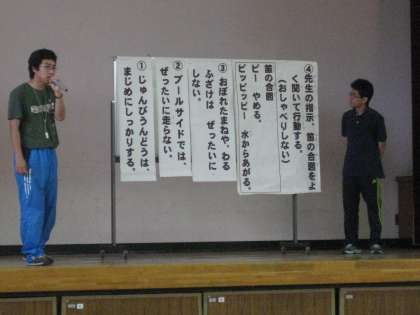 ① じゅんびうんどうは、
まじめにしっかりする。
② プールサイドでは、
ぜったいに走らない。
③ おぼれたまねや、わる
ふざけは ぜったいに
しない。
④ 先生の指示、笛の合図をよ
く聞いて行動する。
（おしゃべりしない）
笛の合図
ピー やめる。
ピッピッピー 水からあがる。